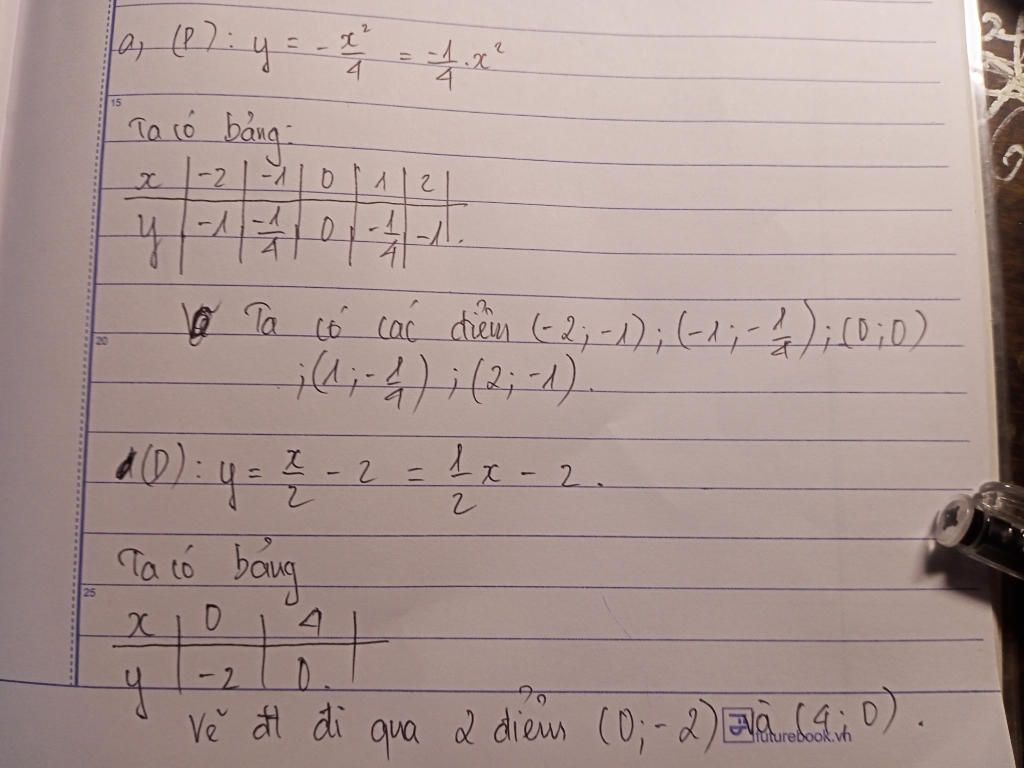 a, (P): y = -x²/4 = -1/4 . x²
15
Ta có bảng:
x | -2 | -1 | 0 | 1 | 2 |
y | -1 | -1/4 | 0 | -1/4 | -1 .
Ta có các điểm (-2; -1); (-1; -1/4); (0; 0)
20
; (1; -1/4) ; (2; -1).
(D): y = x/2 - 2 = 1/2 x - 2 .
Ta có bảng
25
x | 0 | 4 |
y | -2 | 0. |
Vẽ đt đi qua 2 điểm (0; -2) và (4; 0) .
futurebook.vn